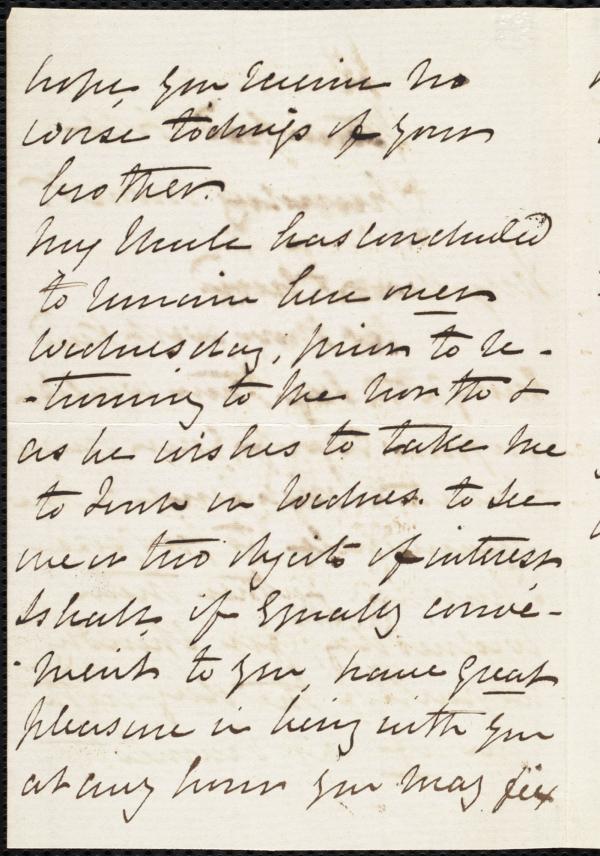 hope, you receive no
worse tidings of your
brother.
My Uncle has concluded
to remain here over
Wednesday, prior to re-
-turning to the north &
as he wishes to take me
to on Wednes. to see
one or two objects of interest
I shall, if equally conve-
-nient to you, have great
pleasure in being with you
at any hour you may fix